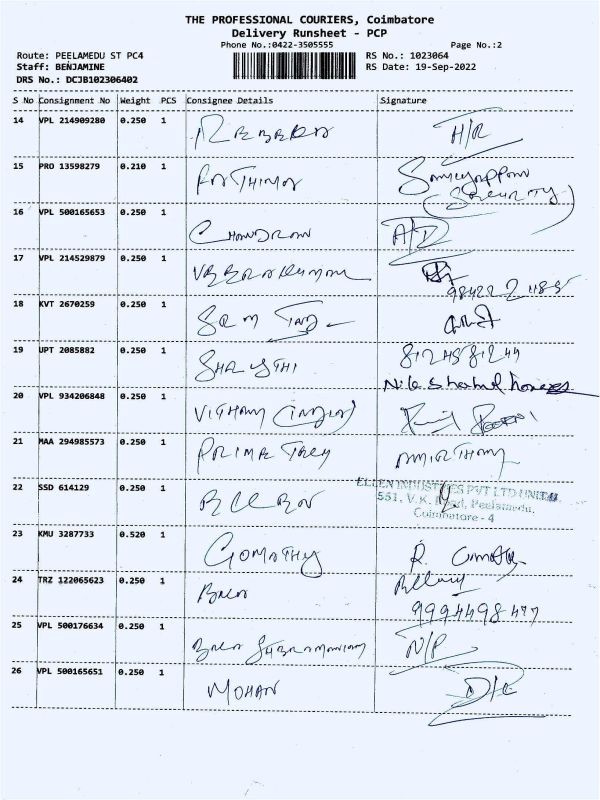 THE PROFESSIONAL COURIERS, Coimbatore
Delivery Runsheet - PCP
Phone No.:0422-3505555 Page No.:2
Route: PEELAMEDU ST PC4 RS No.: 1023064
Staff: BENJAMINE RS Date: 19-Sep-2022
DRS No.: DCJB102306402
S No Consignment No Weight PCS Consignee Details Signature
14 VPL 214909280 0.250 1 H/R
15 PRO 13598279 0.210 1 FATHIMA
(SECURITY)
16 VPL 500165653 0.250 1 CHANDRAN A/D
17 VPL 214529879 0.250 1
18 KVT 2670259 0.250 1
19 UPT 2085882 0.250 1 SHRUTHI
20 VPL 934206848 0.250 1
21 MAA 294985573 0.250 1 PRIME
22 SSD 614129 0.250 1 ELLEN INDUSTRIES PVT LTD
551, V.K. Road, Peelamedu,
Coimbatore - 4
23 KMU 3287733 0.520 1 GOMATHY R.
24 TRZ 122065623 0.250 1 BALA
9994498477
25 VPL 500176634 0.250 1 N/P
26 VPL 500165651 0.250 1 MOHAN D/L